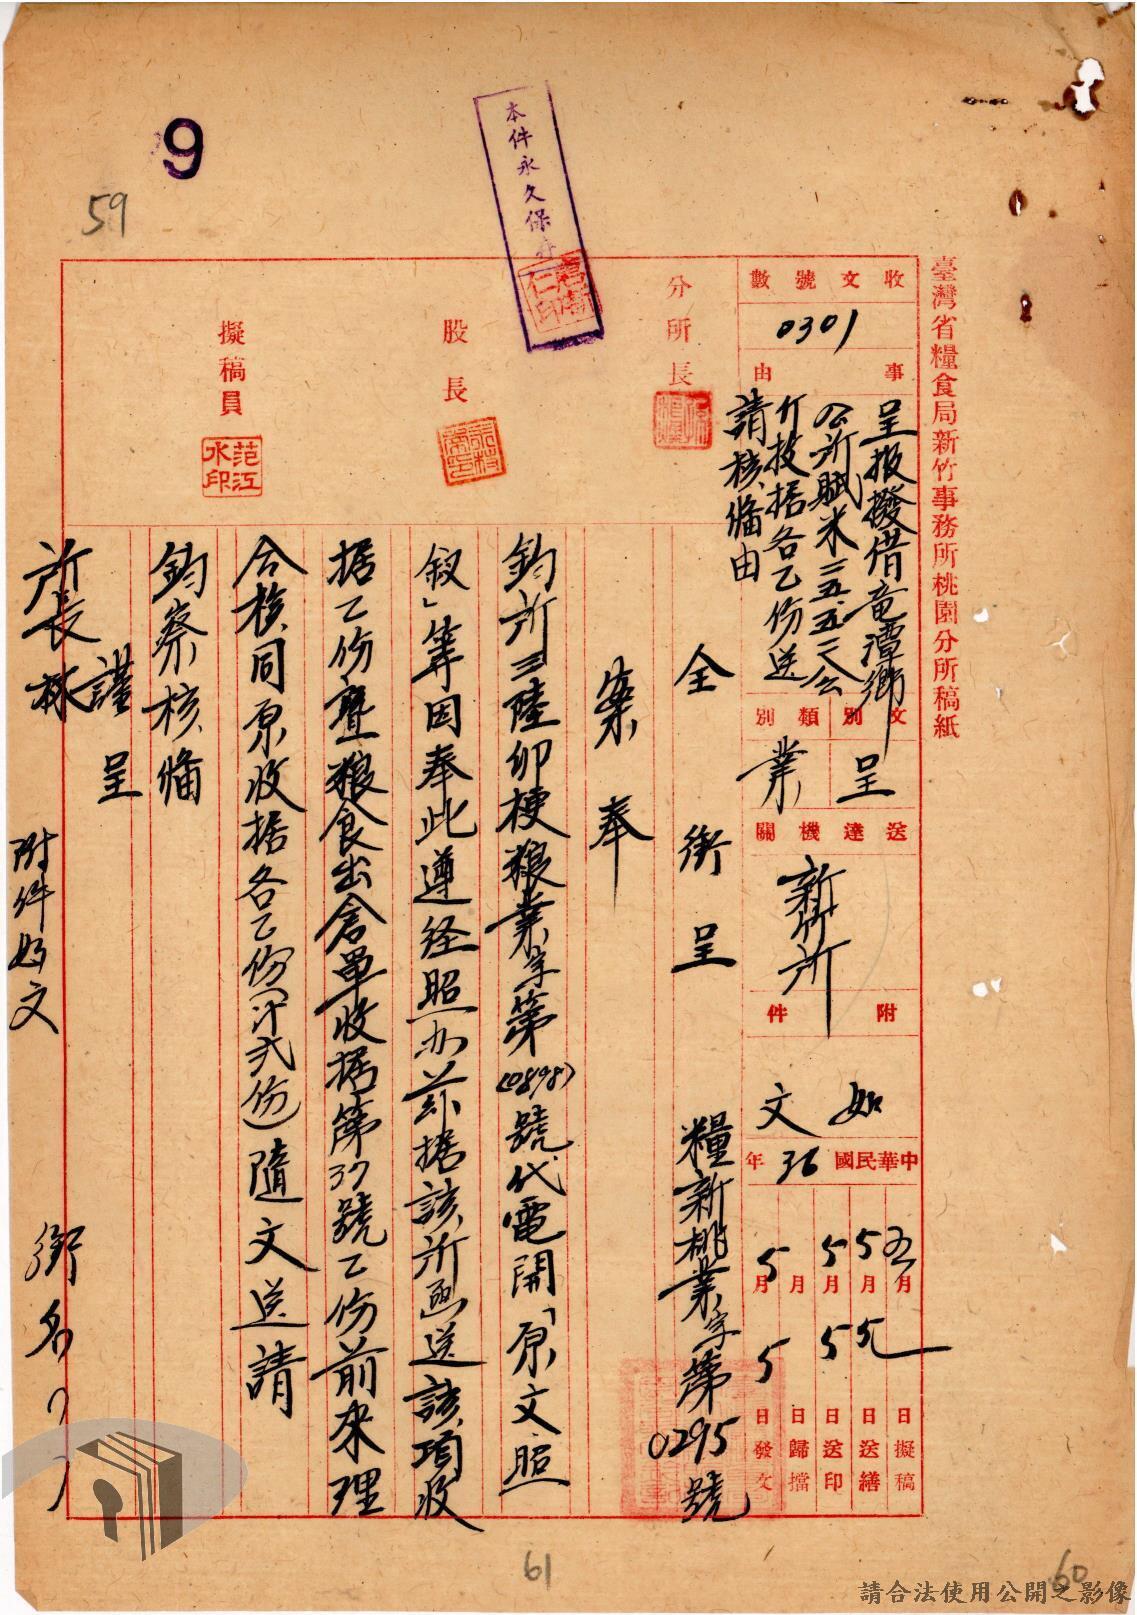 臺灣省糧食局新竹事務所桃園分所稿紙
收文號數
0301
事由
呈报撥借竜潭鄉
公所賦米二五五二公
斤投据各乙份送
請核备由
文別
呈
類別
業
送達機關
新竹所
附件
如文
中華民國36年
五月 日擬稿
5月5日送繕
5月5日送印
月 日歸檔
5月5日發文
分所長
股長
擬稿員
范江水印
本件永久保存
9
59
全銜呈
糧新桃業字第0295號
案奉
鈞所三陸卯梗粮業字第(0898)號代電開「原文照
叙」等因奉此遵经照办茲据該所函送該項收
据乙份暨粮食出倉單收据第37號乙份前来理
合核同原收据各乙份(计弍份)隨文送請
鈞察核备
謹呈
所長林
附件如文
銜名
61
60
請合法使用公開之影像